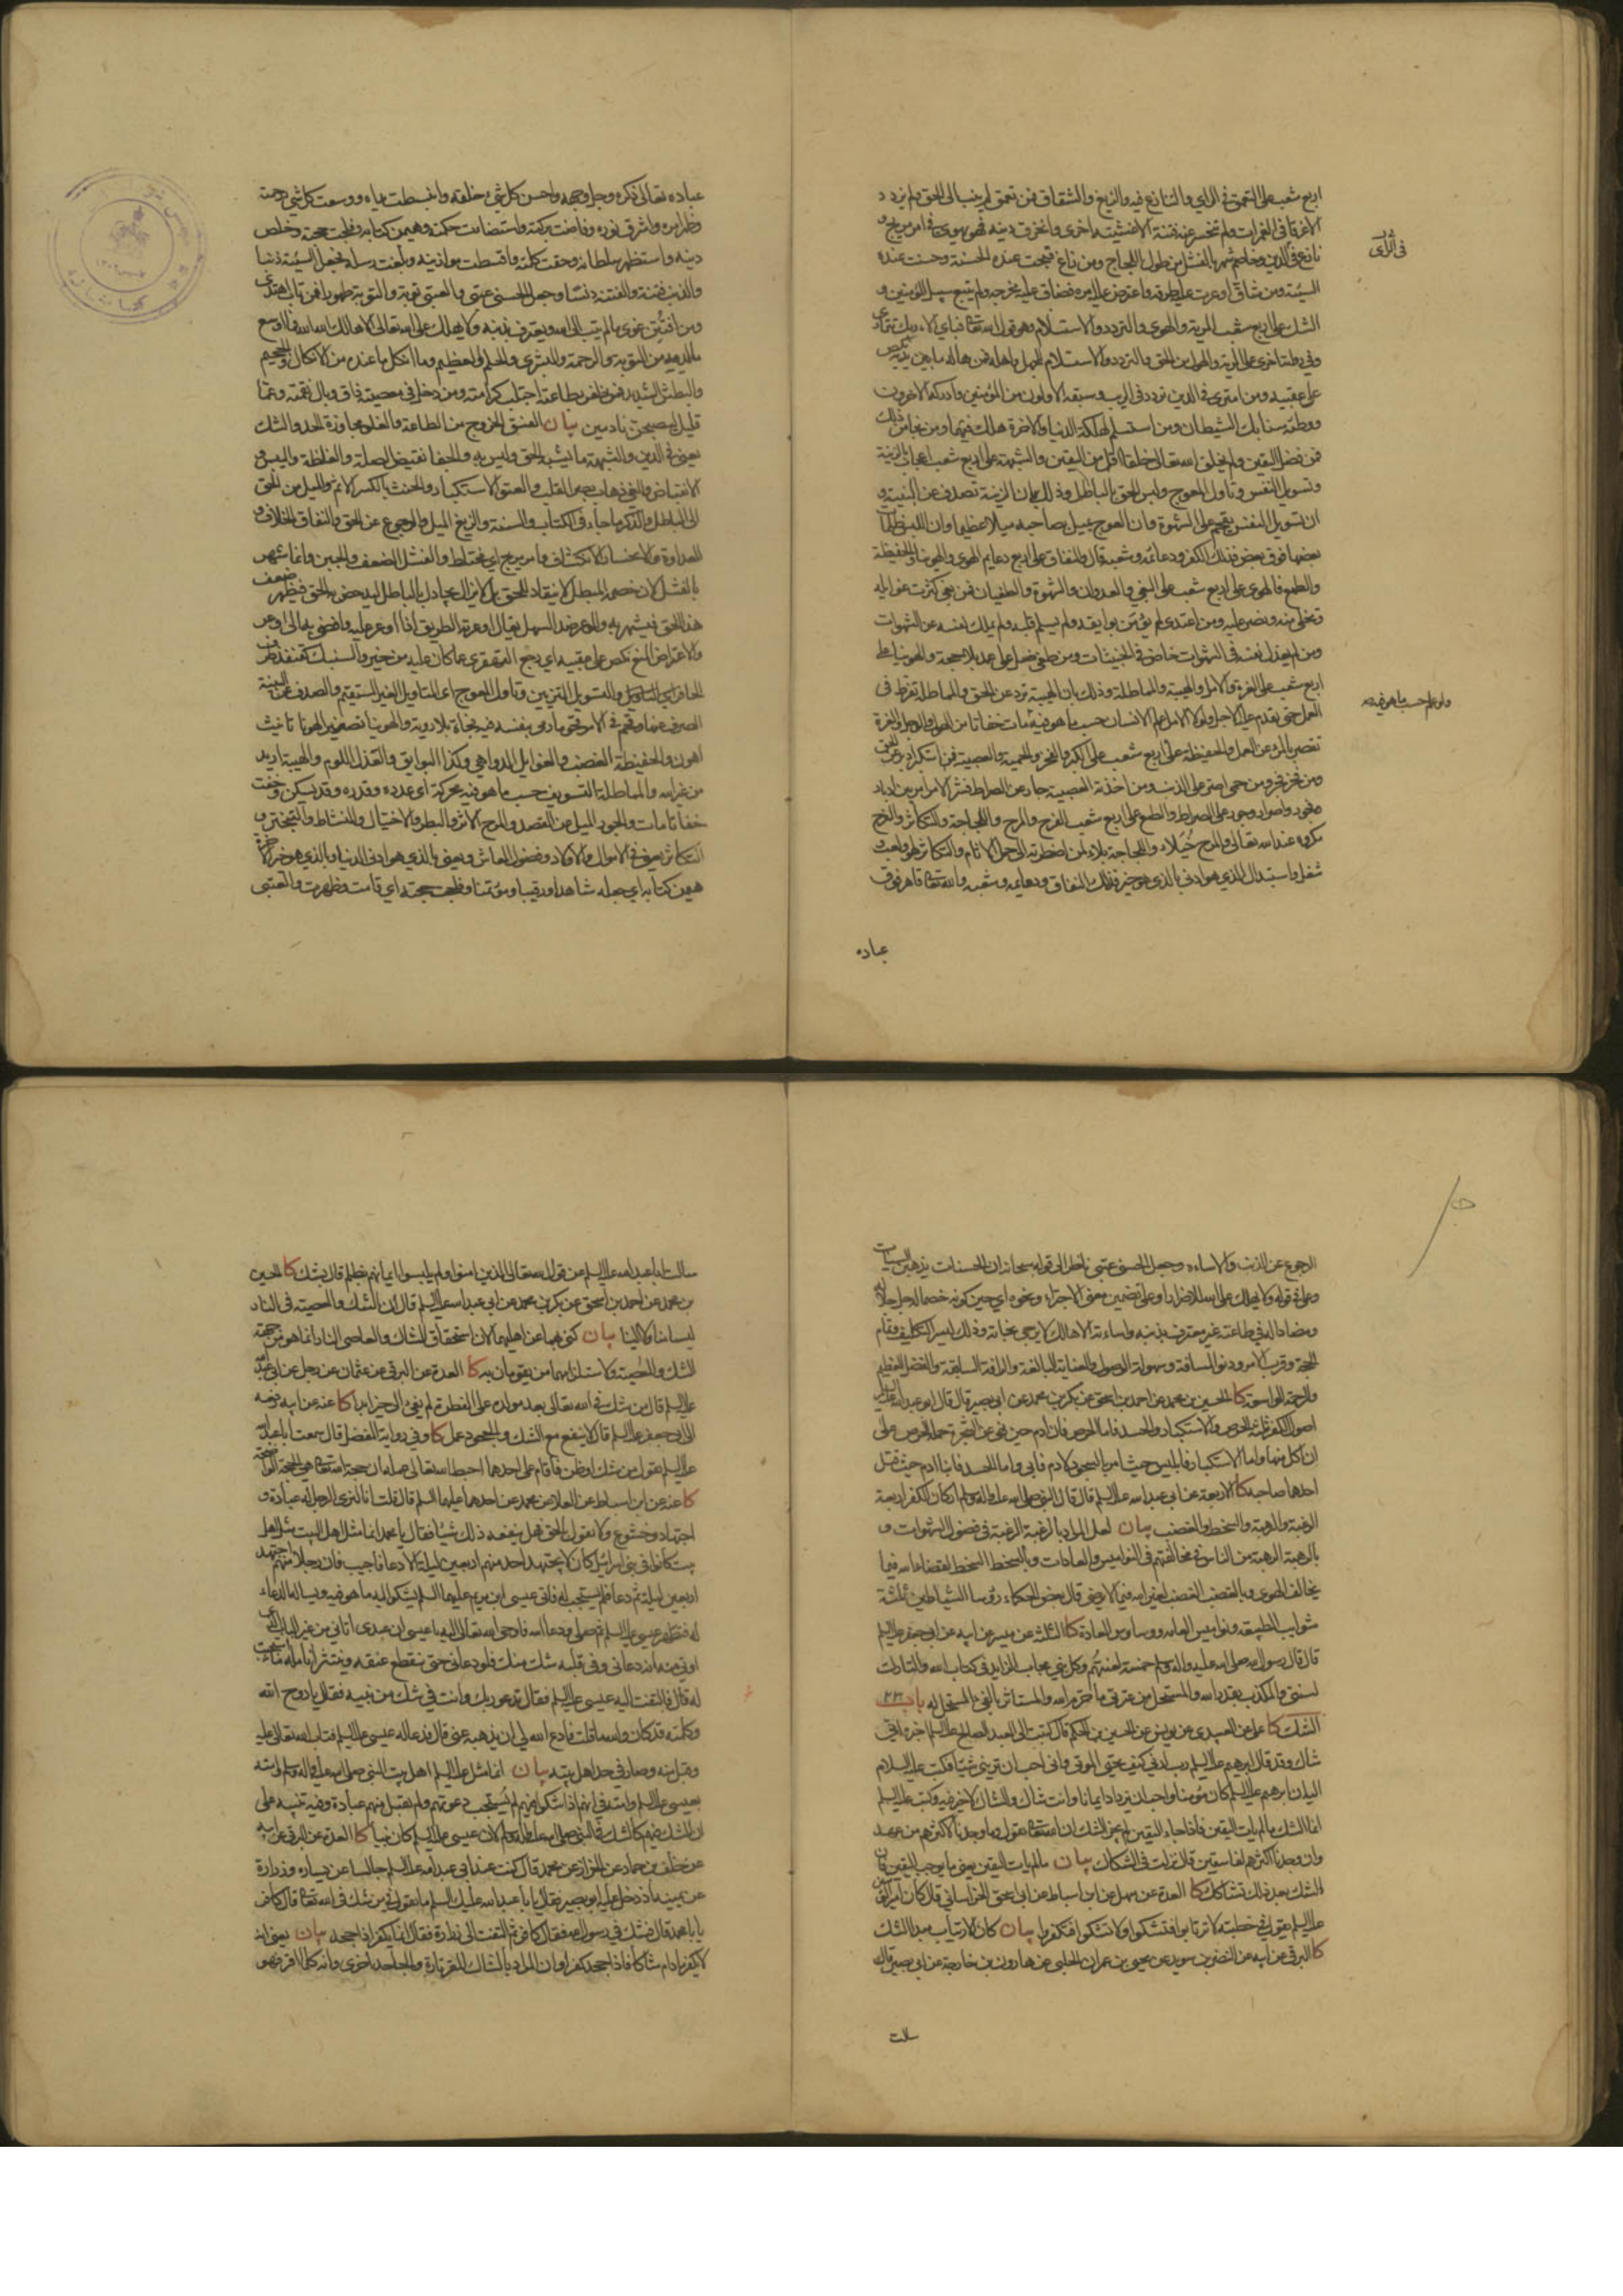 اربع شعب على التعمق في الراي والتنازع فيه والزيغ والشقاق فمن تعمق لم ينب الى الحق ولم يزدد
الا غرقا في الغمرات ولم تنحسر عنه فتنة الا غشيته اخرى وانخرق دينه فهو يهوي في امر مريج و
نازع في الدين وخاصم شهر بالفشل من طول اللجاج ومن زاغ قبحت عنده الحسنة وحسنت عنده
السيئة ومن شاق اوعرت عليه طرقه واعترض عليه امره فضاق عليه مخرجه ولم يتبع سبيل المؤمنين و
الشك على اربع شعب المرية والهوى والتردد والاستسلام وهو قول الله تعالى فباي الاء ربك تتمارى
وفي رواية اخرى على المرية والهول من الحق والتردد والاستسلام للجهل واهله فمن هاله ما بين يديه نكص
على عقبيه ومن امترى في الدين تردد في الريب وسبقه الاولون من المؤمنين وادركه الاخرون
ووطئته سنابك الشيطان ومن استسلم لهلكة الدنيا والاخرة هلك فيهما ومن نجا من ذلك
فمن فضل اليقين ولم يخلق الله تعالى خلقا اقل من اليقين والشبهة على اربع شعب اعجاب بالزينة
وتسويل النفس وتاول العوج ولبس الحق بالباطل وذلك بان الزينة تصدف عن البينة و
ان تسويل النفس يقحم على الشهوة وان العوج يميل بصاحبه ميلا عظيما وان اللبس ظلمات
بعضها فوق بعض فذلك الكفر ودعائمه وشعبه قال والنفاق على اربع دعايم الهوى والهوينا والحفيظة
والطمع فالهوى على اربع شعب على البغي والعدوان والشهوة والطغيان فمن بغى كثرت غوايله
وتخلى منه ونصر عليه ومن اعتدى لم يؤمن بوايقه ولم يسلم قلبه ولم يملك نفسه عن الشهوات
ومن لم يعذل نفسه في الشهوات خاض في الخبيثات ومن طغى ضل على عمد بلا حجة والهوينا على
اربع شعب على الغرة والامل والهيبة والمماطلة وذلك بان الهيبة ترد عن الحق والمماطلة تفرط في
العمل حتى يقدم عليه الاجل ولولا الامل علم الانسان حسب ما هو فيه مات خفاتا من الهول والوجل والغرة
تقصر بالمرء عن العمل والحفيظة على اربع شعب على الكبر والفخر والحمية والعصبية فمن استكبر ادبر عن الحق
ومن فخر فجر ومن حمى اصر على الذنوب ومن اخذته العصبية جار عن الصراط فبئس الامر امر بين ادبار
وفجور واصرار وجور على الصراط والطمع على اربع شعب الفرح والمرح واللجاجة والتكاثر والفرح
مكروه عند الله تعالى والمرح خيلاء واللجاجة بلاء لمن اضطرته الى حمل الاثام والتكاثر لهو ولعب و
شغل واستبدال الذي هو ادنى بالذي هو خير فذلك النفاق ودعايمه وشعبه والله تعالى قاهر فوق
عباده
في الراي
ولو علم حسب ما هو فيه
عباده تعالى ذكره وجل وجهه واحسن كل شيء خلقه وانبسطت يداه ووسعت كل شيء رحمته
وظهر امره واشرق نوره وفاضت بركته واستضاءت حكمته وهيمن كتابه وفلجت حجته وخلص
دينه واستظهر سلطانه وحقت كلمته واقسطت موازينه وبلغت رسله فجعل السيئة ذنبا
والذنب فتنة والفتنة دنسا وجعل الحسنى عتبى والعتبى توبة والتوبة طهورا فمن تاب اهتدى
ومن افتتن غوى ما لم يتب الى الله ويعترف بذنبه ولا يهلك على الله تعالى الا هالك الله الله فما اوسع
ما لديه من التوبة والرحمة والبشرى والحلم العظيم وما انكل ما عنده من الانكال والجحيم
والبطش الشديد فمن ظفر بطاعته اجتلب كرامته ومن دخل في معصيته ذاق وبال نقمته وعما
قليل ليصبحن نادمين بيان الفسق الخروج من الطاعة والغلو مجاوزة الحد والشك
يعني في الدين والشبهة ما يشبه الحق وليس به والجفا نقيض الصلة والغلظة واليبس و
الانقباض والعمى ذهاب بصر القلب والعتو الاستكبار والحنث بالكسر الاثم والميل من الحق
الى الباطل والذكر ما جاء في الكتاب والسنة والزيغ الميل والرجوع عن الحق والشقاق الخلاف و
العداوة والانحسار الانكشاف وامر مريج اي مختلط والفشل الضعف والجبن وانما شهر
بالفشل لان خصمه المبطل لا ينقاد للحق بل لا يزال يجادل بالباطل ليدحض به الحق فيظهر ضعف
هذا المحق فيشهر به والوعر ضد السهل يقال اوعر به الطريق اذا وعر عليه وافضى به الى وعر
والاعتراض المنع نكص على عقبيه اي رجع القهقرى عما كان عليه من خير والسنبك كقنفذ طرف
الحافر والتسويل التزيين وتاول العوج اي التاويل الغير المستقيم والصدف عن البينة
الصرف عنها وقحم في الامر رمى بنفسه فيه فجاة بلا روية والهوينا تصغير الهونا تانيث
اهون والحفيظة الغضب والغوايل الدواهي وكذا البوايق والعذل اللوم والهيبة اريد
من غير الله والمماطلة التسويف حسب ما هو فيه بحركة اي عدده وقدره وقد يسكن وخفت
خفاتا مات والجور الميل عن القصد والمرح الاشر والبطر والاختيال والنشاط والتبختر و
التكاثر يعني في الاموال والاولاد وفضول المعاش ويعني بالذي هو ادنى الدنيا وبالذي هو خير الاخرة
هيمن كتابه اي جعله شاهدا ورقيبا ومؤتمنا وفلجت حجته اي قامت وظهرت والعتبى
الرجوع عن الذنب والاساءة وجعل الحسنى عتبى ناظر الى قوله سبحانه ان الحسنات يذهبن السيئات
الحجة وقرب الامر ودنو المسافة وسهولة الوصول والعناية البالغة والرافة السابقة والفضل العظيم
والرحمة الواسعة كا الحسين بن محمد عن احمد بن اسحق عن بكر بن محمد عن ابي بصير قال قال ابو عبد الله عليه السلام
اصول الكفر ثلثة الحرص والاستكبار والحسد فاما الحرص فان ادم حين نهي عن الشجرة حمله الحرص على
ان اكل منها واما الاستكبار فابليس حيث امر بالسجود لادم فابى واما الحسد فابنا ادم حيث قتل
احدهما صاحبه كا الاربعة عن ابي عبد الله عليه السلم قال قال النبي صلى الله عليه واله وسلم اركان الكفر اربعة
الرغبة والرهبة والسخط والغضب بيان لعل المراد بالرغبة الرغبة في فضول الشهوات و
بالرهبة الرهبة من الناس في مخالفتهم في النواميس والعادات وبالسخط السخط لقضاء الله فيما
يخالف الهوى وبالغضب الغضب لغير الله فيما لا يرضى قال بعض الحكماء رؤسا الشياطين ثلثة
شوايب الطبيعة ونواميس العامة ووساوس العادة كا الثلثة عن ميسر عن ابيه عن ابي جعفر عليه السلم
قال قال رسول الله صلى الله عليه واله وسلم خمسة لعنتهم وكل نبي مجاب الزايد في كتاب الله والتارك
لسنتي والمكذب بقدر الله والمستحل من عترتي ما حرم الله والمستاثر بالفيء المستحل له باب
الشك كا علي عن العبيدي عن يونس عن الحسين بن الحكم قال كتبت الى العبد الصالح عليه السلم اخبره اني
شاك وقد قال ابرهيم عليه السلم رب ارني كيف تحيي الموتى واني احب ان تريني شيئا فكتب عليه السلام
اليه ان ابرهيم عليه السلم كان مؤمنا واحب ان يزداد ايمانا وانت شاك والشاك لا خير فيه وكتب عليه السلم
انما الشك ما لم يات اليقين فاذا جاء اليقين لم يجز الشك ان الله تعالى يقول وما وجدنا لاكثرهم من عهد
وان وجدنا اكثرهم لفاسقين قال نزلت في الشكاك بيان ما لم يات اليقين يعني ما يوجب اليقين فان
الشك بعد ذلك تشاكك كا العدة عن سهل عن ابن اسباط عن ابي اسحق الخراساني قال كان امير المؤمنين
عليه السلم يقول في خطبته لا ترتابوا فتشكوا ولا تشكوا فتكفروا بيان كان الارتياب مبدا الشك
كا البرقي عن ابيه عن النضر بن سويد عن يحيى بن عمران الحلبي عن هارون بن خارجة عن ابي بصير قال
سالت
سالت ابا عبد الله عليه السلم عن قول الله تعالى الذين امنوا ولم يلبسوا ايمانهم بظلم قال بشك كا الحسين
بن محمد عن احمد بن اسحق عن بكر بن محمد عن ابي عبد الله عليه السلم قال ان الشك والمعصية في النار
ليسا منا ولا الينا بيان كونهما عن اهليهما لان استحقاق الشاك والعاصي النار انما هو من جهة
الشك والمعصية ولاستلزامهما من يقومان به كا العدة عن البرقي عن عثمان عن رجل عن ابي عبد الله
عليه السلم قال من شك في الله تعالى بعد مولده على الفطرة لم يفئ الى خير ابدا كا عنه عن ابيه رفعه
الى ابي جعفر عليه السلم قال لا ينفع مع الشك والجحود عمل كا وفي رواية المفضل قال سمعت ابا عبد الله
عليه السلم يقول من شك او ظن فاقام على احدهما احبط الله تعالى عمله ان حجة الله تعالى هي الحجة الواضحة
كا عنه عن ابن اسباط عن العلا عن محمد عن احدهما عليهما السلم قال قلت انا لنرى الرجل له عبادة و
اجتهاد وخشوع ولا يقول بالحق فهل ينفعه ذلك شيئا فقال يا محمد انما مثل اهل البيت مثل اهل
بيت كانوا في بني اسرائيل كان لا يجتهد احد منهم اربعين ليلة الا دعا فاجيب فان رجلا منهم اجتهد
اربعين ليلة ثم دعا فلم يستجب له فاتى عيسى ابن مريم عليهما السلم يشكو اليه ما هو فيه ويساله الدعاء
له فتطهر عيسى عليه السلم ثم صلى ودعا الله فاوحى الله تعالى اليه يا عيسى ان عبدي اتاني من غير الباب الذي
اوتى منه انه دعاني وفي قلبه شك منك فلو دعاني حتى ينقطع عنقه وينتثر انامله ما استجبت
له قال فالتفت اليه عيسى عليه السلم فقال تدعو ربك وانت في شك من نبيه فقال يا روح الله
وكلمته قد كان والله ما قلت فادع الله لي ان يذهب به عني قال فدعا له عيسى عليه السلم فتاب الله تعالى عليه
وقبل منه وصار في حد اهل بيته بيان انما مثل عليه السلم اهل بيت النبي صلى الله عليه واله وسلم وامته
بعيسى عليه السلم وامته في انهم اذا شكوا فيهم لم يستجب دعوتهم ولم يقبل منهم عبادة وفيه تنبيه على
ان الشك فيهم كالشك في النبي صلى الله عليه واله وسلم لان عيسى عليه السلم كان نبيا كا العدة عن البرقي عن ابيه
عن خلف بن حماد عن الخراز عن محمد قال كنت عند ابي عبد الله عليه السلم جالسا عن يساره وزرارة
عن يمينه اذ دخل عليه ابو بصير فقال يا ابا عبد الله عليك السلم ما تقول فيمن شك في الله تعالى قال كافر
يا با محمد قال فشك في رسول الله فقال كافر ثم التفت الى زرارة فقال انما يكفر اذا جحد بيان يعني انه
لا يكفر ما دام شاكا فاذا جحد كفر او ان المراد بالشاك المقر تارة والجاحد اخرى وانه كلما اقر فهو